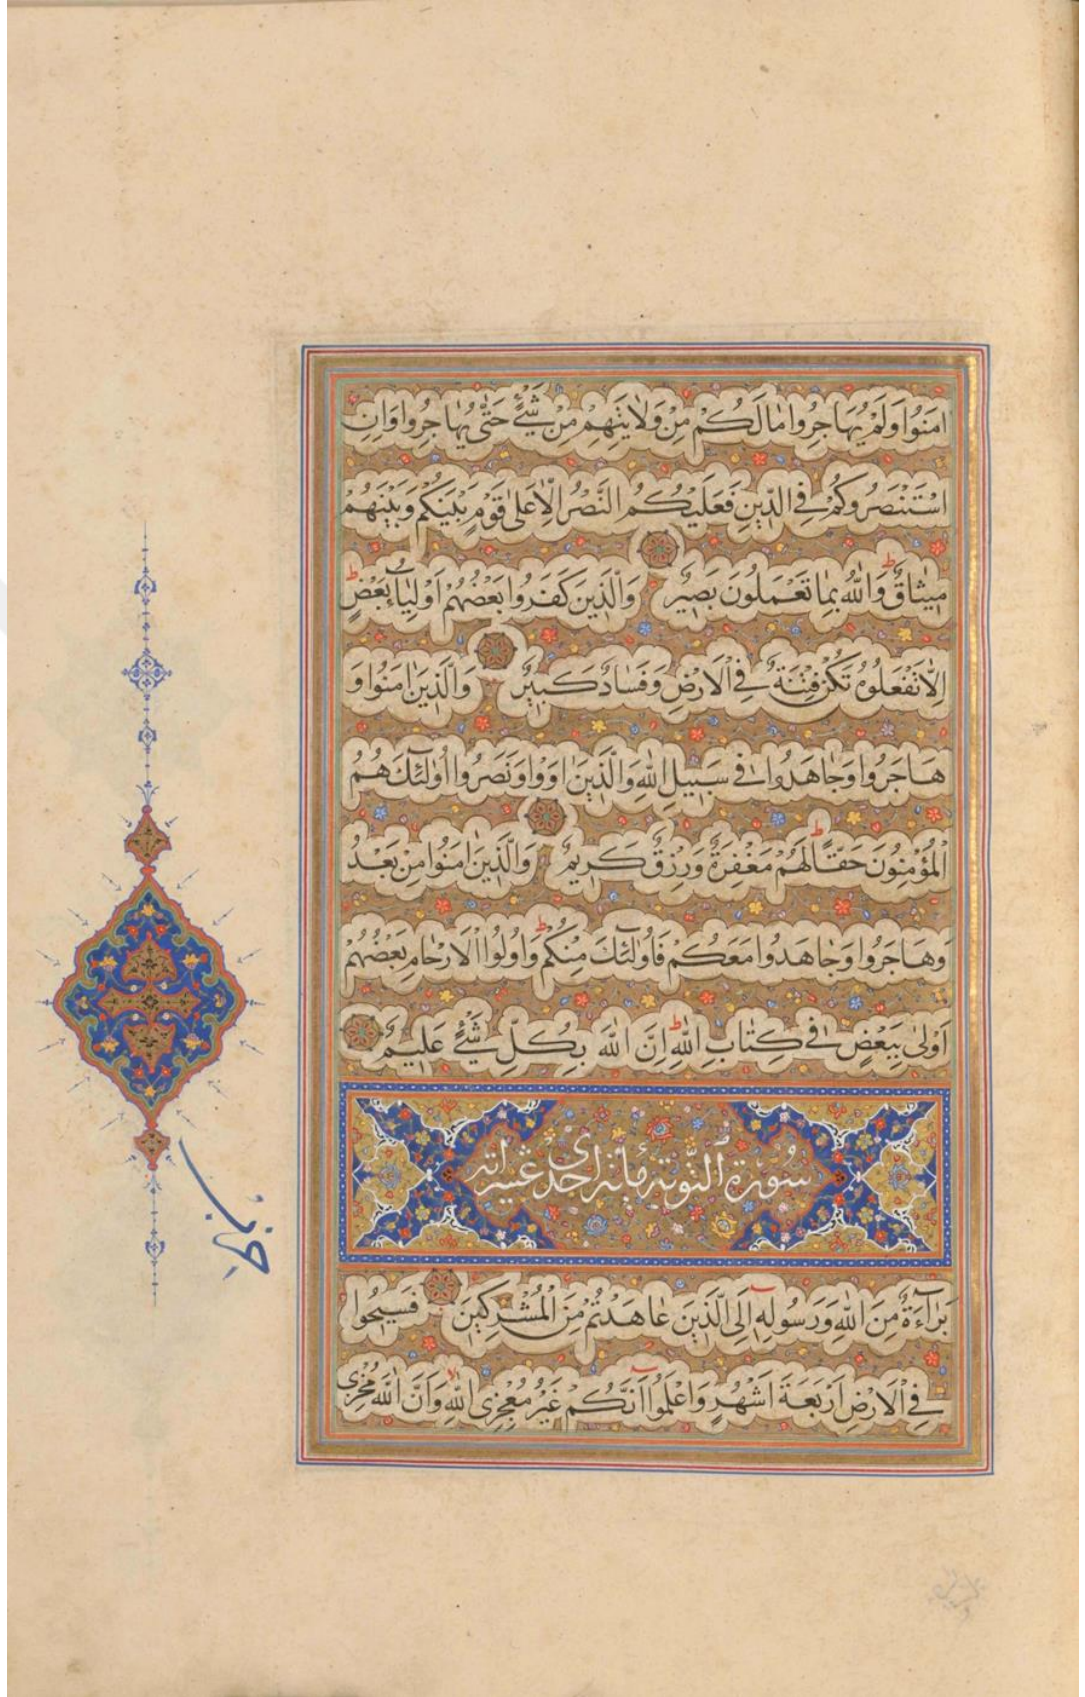 اٰمَنُوا وَلَمْ يُهَاجِرُوا مَالَكُمْ مِنْ وَلَايَتِهِمْ مِنْ شَيْءٍ حَتّٰى يُهَاجِرُوا وَاِنِ
اسْتَنْصَرُوكُمْ فِي الدِّينِ فَعَلَيْكُمُ النَّصْرُ اِلَّا عَلٰى قَوْمٍ بَيْنَكُمْ وَبَيْنَهُمْ
مِيثَاقٌ ط وَاللّٰهُ بِمَا تَعْمَلُونَ بَصِيرٌ وَالَّذِينَ كَفَرُوا بَعْضُهُمْ اَوْلِيَاءُ بَعْضٍ ط
اِلَّا تَفْعَلُوهُ تَكُنْ فِتْنَةٌ فِي الْاَرْضِ وَفَسَادٌ كَبِيرٌ وَالَّذِينَ اٰمَنُوا وَ
هَاجَرُوا وَجَاهَدُوا فِي سَبِيلِ اللّٰهِ وَالَّذِينَ اٰوَوْا وَنَصَرُوا اُولٰئِكَ هُمُ
الْمُؤْمِنُونَ حَقًّا ط لَهُمْ مَغْفِرَةٌ وَرِزْقٌ كَرِيمٌ وَالَّذِينَ اٰمَنُوا مِنْ بَعْدُ
وَهَاجَرُوا وَجَاهَدُوا مَعَكُمْ فَاُولٰئِكَ مِنْكُمْ ط وَاُولُوا الْاَرْحَامِ بَعْضُهُمْ
اَوْلٰى بِبَعْضٍ فِي كِتَابِ اللّٰهِ ط اِنَّ اللّٰهَ بِكُلِّ شَيْءٍ عَلِيمٌ
سُورَة التَّوبة مائة احدى عشر اية
بَرَاءَةٌ مِنَ اللّٰهِ وَرَسُولِهِ اِلَى الَّذِينَ عَاهَدْتُمْ مِنَ الْمُشْرِكِينَ فَسِيحُوا
فِي الْاَرْضِ اَرْبَعَةَ اَشْهُرٍ وَاعْلَمُوا اَنَّكُمْ غَيْرُ مُعْجِزِي اللّٰهِ لا وَاَنَّ اللّٰهَ مُخْزِي